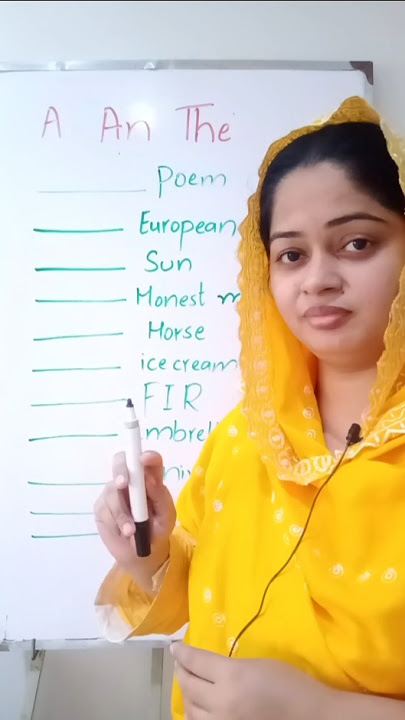 A An The
Poem
European
Sun
Monest
Horse
ice cream
FIR